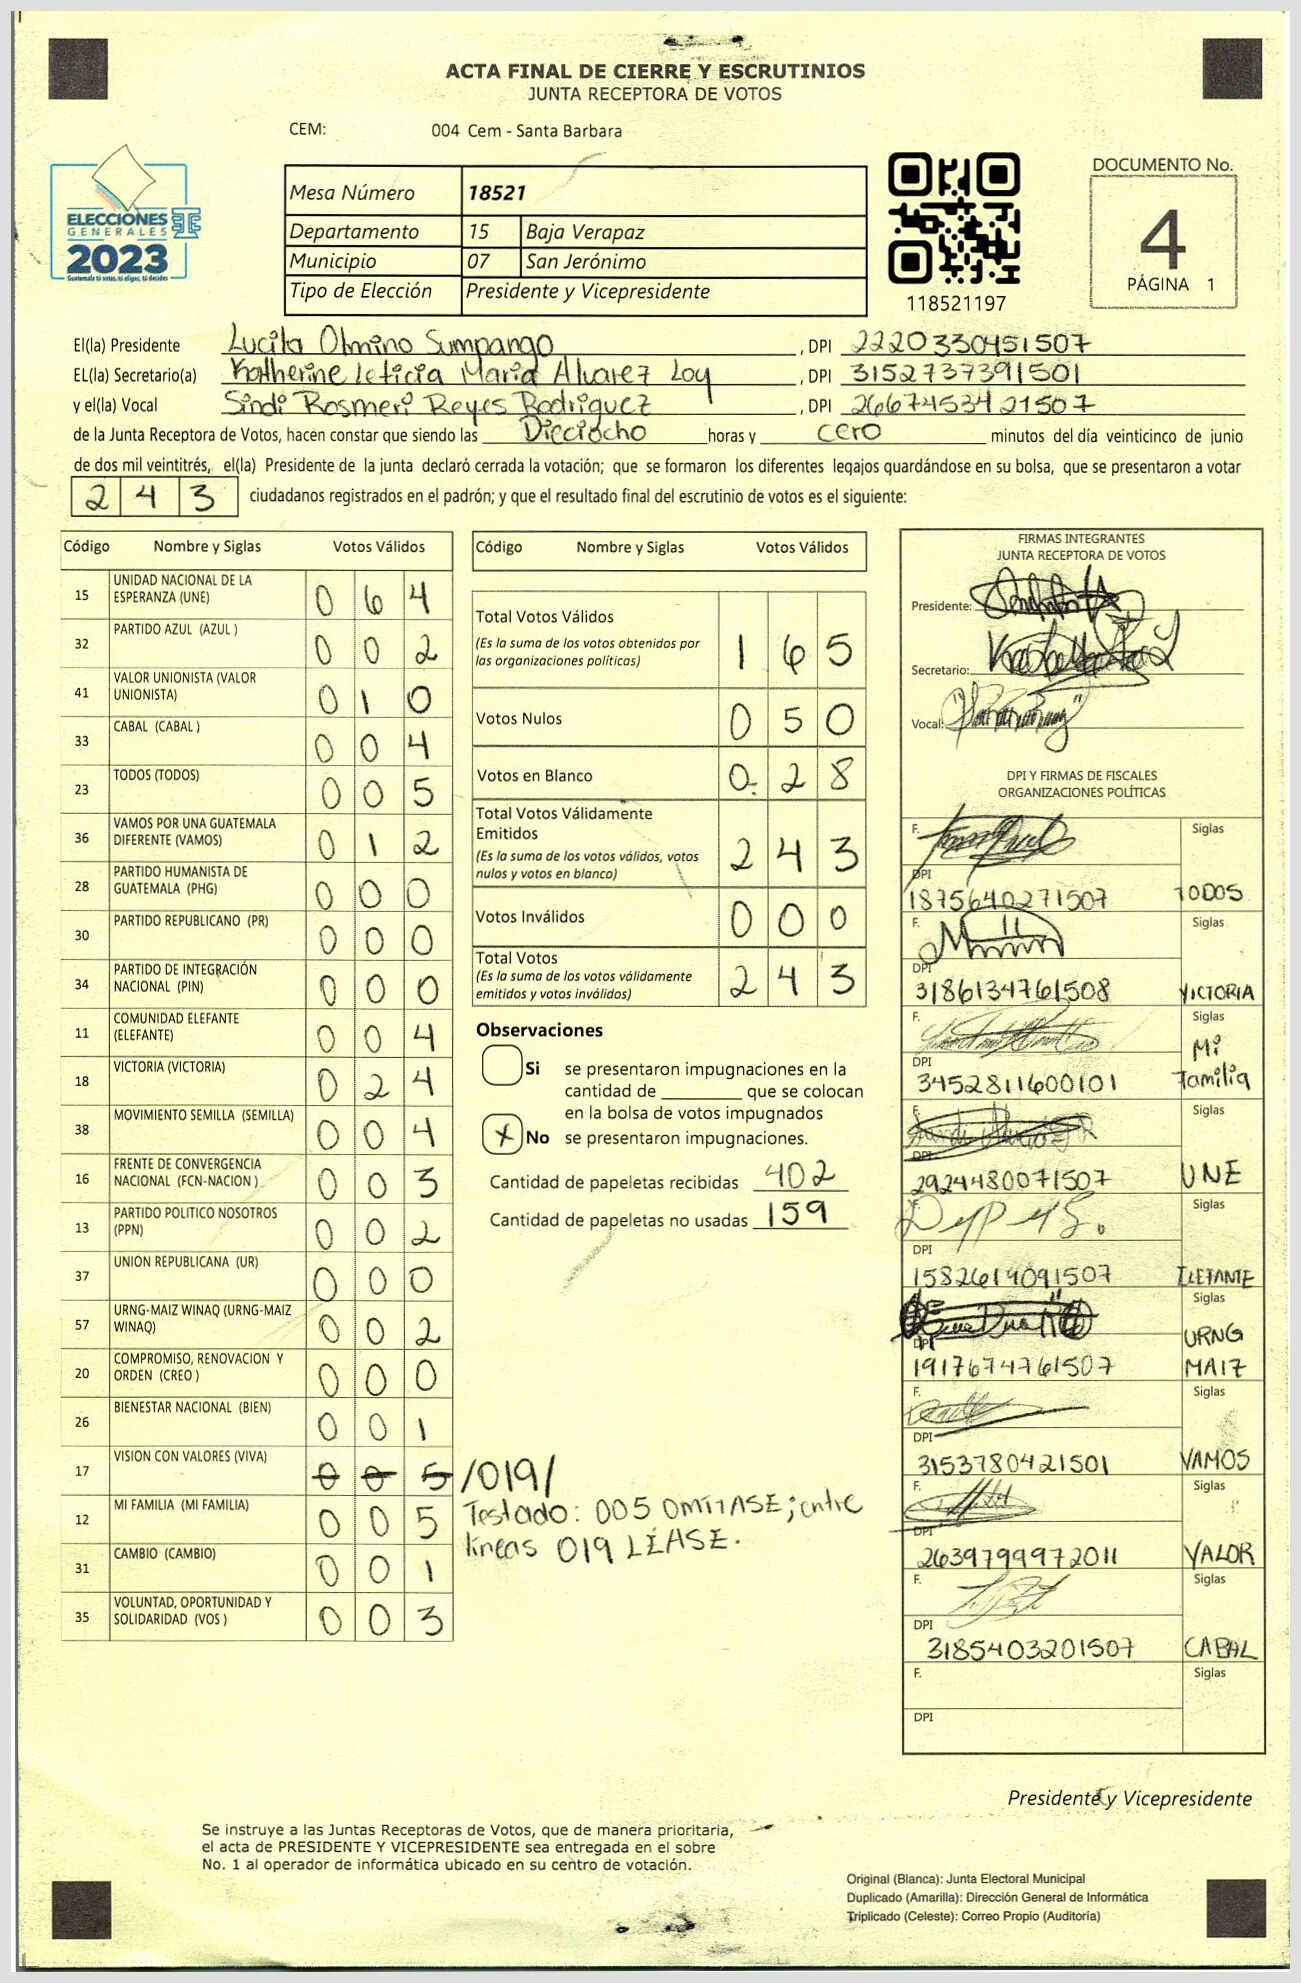 ACTA FINAL DE CIERRE Y ESCRUTINIOS
JUNTA RECEPTORA DE VOTOS
CEM: 004 Cem - Santa Barbara
ELECCIONES
GENERALES
2023
Guatemala tú votas, tú eliges, tú decides
Mesa Número 18521
Departamento 15 Baja Verapaz
Municipio 07 San Jerónimo
Tipo de Elección Presidente y Vicepresidente
118521197
DOCUMENTO No.
4
PÁGINA 1
El(la) Presidente Lucila Olmino Sumpango, DPI 2220330451507
EL(la) Secretario(a) Katherine Leticia María Alvarez Loy, DPI 3152737391501
y el(la) Vocal Sindi Rosmeri Reyes Rodriguez, DPI 2667453421507
de la Junta Receptora de Votos, hacen constar que siendo las Dieciocho horas y cero minutos del día veinticinco de junio
de dos mil veintitrés, el(la) Presidente de la junta declaró cerrada la votación; que se formaron los diferentes legajos guardándose en su bolsa, que se presentaron a votar
243 ciudadanos registrados en el padrón; y que el resultado final del escrutinio de votos es el siguiente:
Código Nombre y Siglas Votos Válidos
15 UNIDAD NACIONAL DE LA ESPERANZA (UNE) 064
32 PARTIDO AZUL (AZUL ) 002
41 VALOR UNIONISTA (VALOR UNIONISTA) 010
33 CABAL (CABAL ) 004
23 TODOS (TODOS) 005
36 VAMOS POR UNA GUATEMALA DIFERENTE (VAMOS) 012
28 PARTIDO HUMANISTA DE GUATEMALA (PHG) 000
30 PARTIDO REPUBLICANO (PR) 000
34 PARTIDO DE INTEGRACIÓN NACIONAL (PIN) 000
11 COMUNIDAD ELEFANTE (ELEFANTE) 004
18 VICTORIA (VICTORIA) 024
38 MOVIMIENTO SEMILLA (SEMILLA) 004
16 FRENTE DE CONVERGENCIA NACIONAL (FCN-NACION ) 003
13 PARTIDO POLITICO NOSOTROS (PPN) 002
37 UNION REPUBLICANA (UR) 000
57 URNG-MAIZ WINAQ (URNG-MAIZ WINAQ) 002
20 COMPROMISO, RENOVACION Y ORDEN (CREO ) 000
26 BIENESTAR NACIONAL (BIEN) 001
17 VISION CON VALORES (VIVA) 005 /019/
12 MI FAMILIA (MI FAMILIA) 005
31 CAMBIO (CAMBIO) 001
35 VOLUNTAD, OPORTUNIDAD Y SOLIDARIDAD (VOS ) 003
Testado: 005 OMITASE; entre
lineas 019 LÉASE.
Código Nombre y Siglas Votos Válidos
Total Votos Válidos 165
(Es la suma de los votos obtenidos por
las organizaciones políticas)
Votos Nulos 050
Votos en Blanco 028
Total Votos Válidamente
Emitidos 243
(Es la suma de los votos válidos, votos
nulos y votos en blanco)
Votos Inválidos 000
Total Votos 243
(Es la suma de los votos válidamente
emitidos y votos inválidos)
Observaciones
Si se presentaron impugnaciones en la
cantidad de ________ que se colocan
en la bolsa de votos impugnados
X No se presentaron impugnaciones.
Cantidad de papeletas recibidas 402
Cantidad de papeletas no usadas 159
FIRMAS INTEGRANTES
JUNTA RECEPTORA DE VOTOS
Presidente:
Secretario:
Vocal:
DPI Y FIRMAS DE FISCALES
ORGANIZACIONES POLÍTICAS
F. Siglas
DPI 1875640271507 TODOS
F. Siglas
DPI 3186134761508 VICTORIA
F. Siglas
DPI 3452811600101 Mi Familia
F. Siglas
DPI 2924480071507 UNE
F. Siglas
DPI 1582614091507 ELEFANTE
Siglas
DPI 1917674761507 URNG MAIZ
F. Siglas
DPI 3153780421501 VAMOS
F. Siglas
DPI 2639799972011 VALOR
F. Siglas
DPI 3185403201507 CABAL
F. Siglas
DPI
Presidente y Vicepresidente
Se instruye a las Juntas Receptoras de Votos, que de manera prioritaria,
el acta de PRESIDENTE Y VICEPRESIDENTE sea entregada en el sobre
No. 1 al operador de informática ubicado en su centro de votación.
Original (Blanca): Junta Electoral Municipal
Duplicado (Amarilla): Dirección General de Informática
Triplicado (Celeste): Correo Propio (Auditoría)